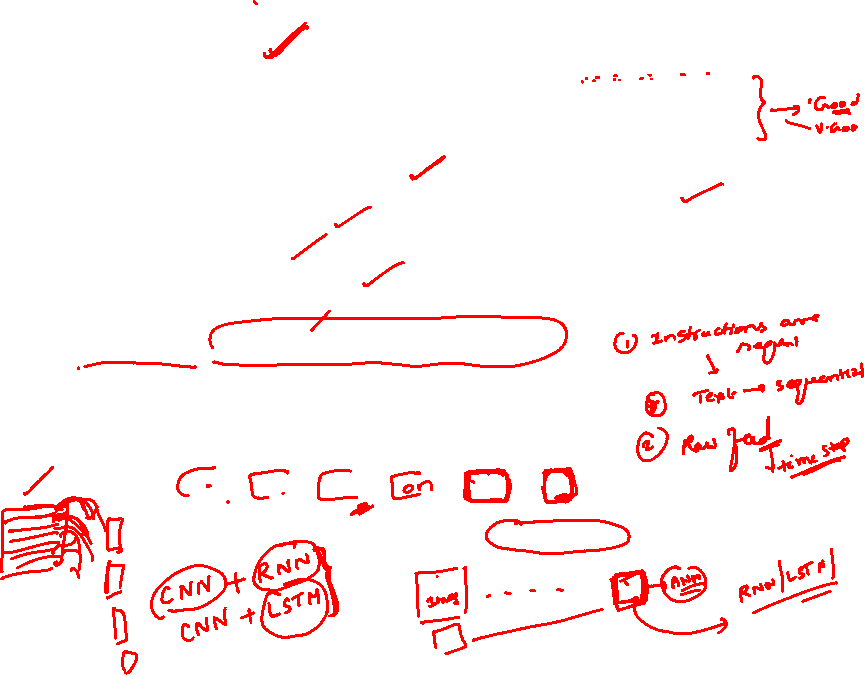 Good
V.Goo
① Instructions are
Text → sequential
② Raw
time step
on
CNN + RNN
CNN + LSTM
ANN
RNN/LSTM